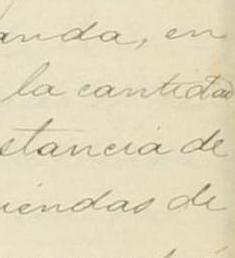 anda, en
la cantidad
stancia de
iendas de